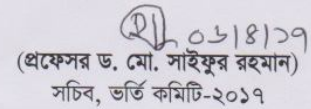 ০১/৪/১৭
(প্রফেসর ড. মো. সাইফুর রহমান)
সচিব, ভর্তি কমিটি-২০১৭